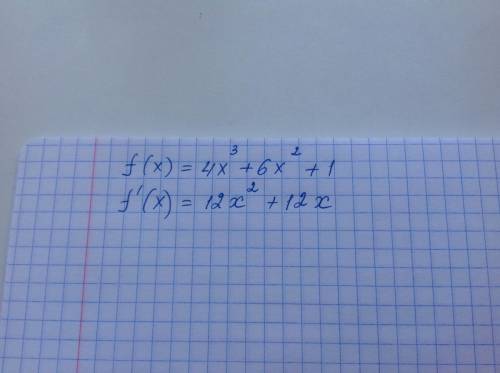 f(x) = 4x³ + 6x² + 1
f'(x) = 12x² + 12x